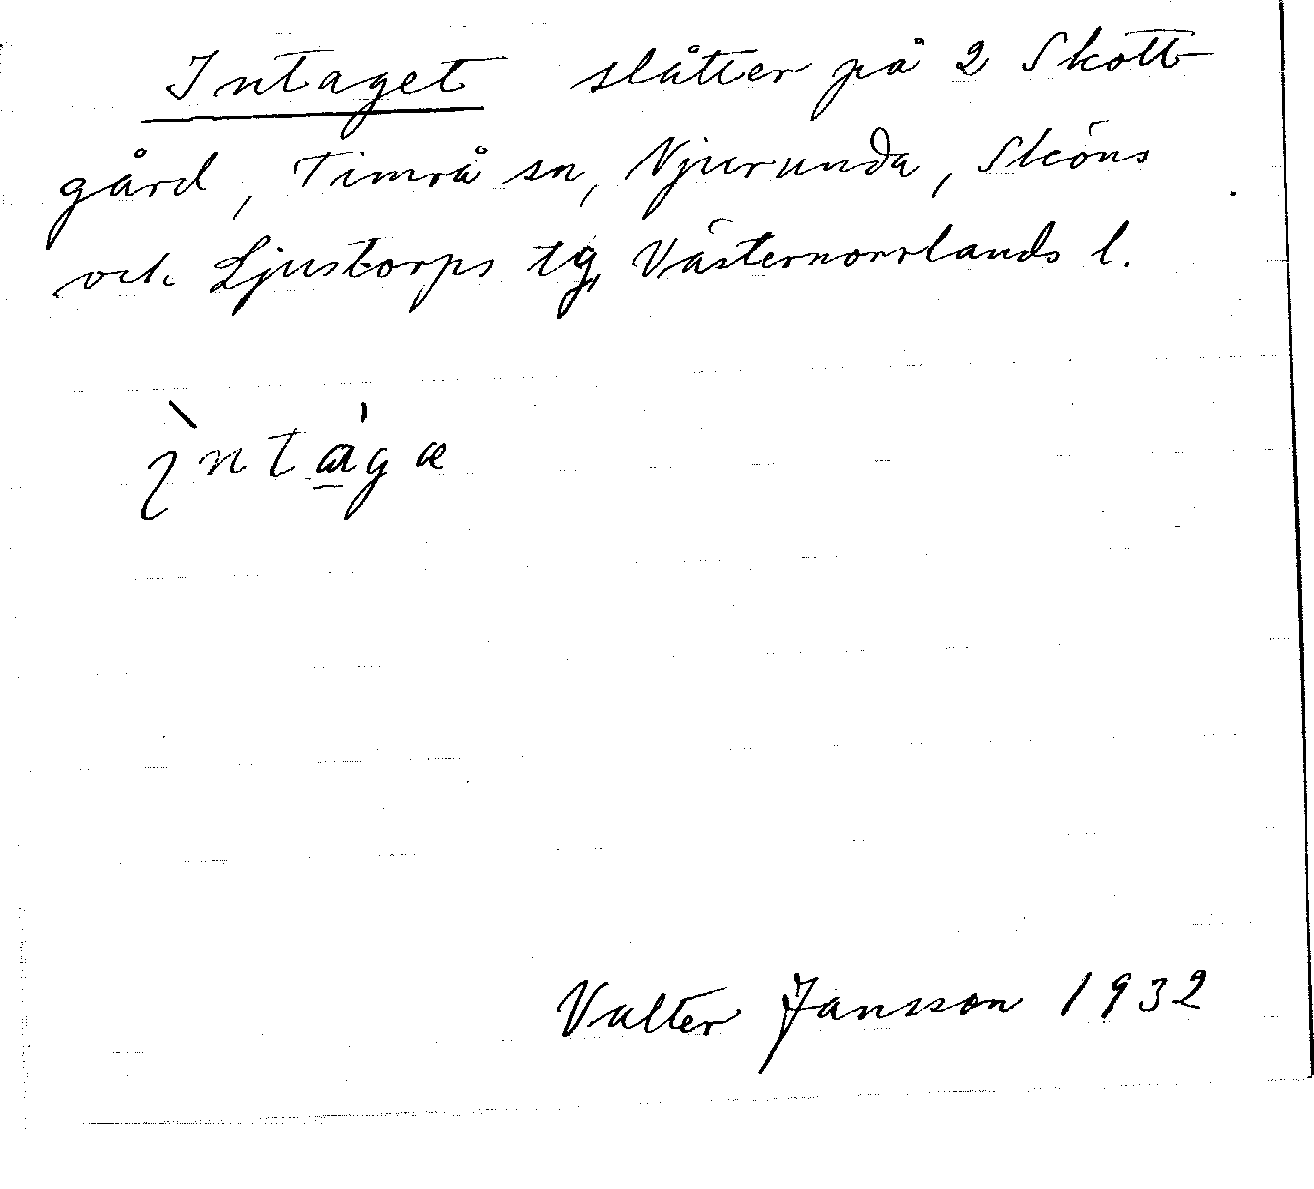 Intaget slåtter på 2 Skott-
gård, Timrå sn, Njurunda, Sköns
och Ljustorps tg, Västernorrlands l.
ìnta̲̍gæ
Valter Jansson 1932